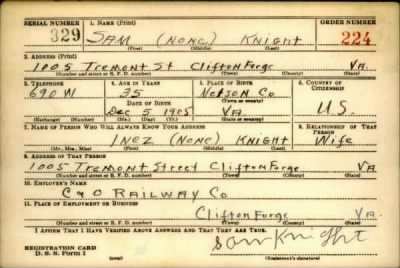 SERIAL NUMBER 1. NAME (Print) ORDER NUMBER
329 SAM (NONE) KNIGHT 224
(First) (Middle) (Last)
2. ADDRESS (Print)
1005 Tremont St Clifton Forge VA.
(Number and street or R. F. D. number) (Town) (County) (State)
3. TELEPHONE 4. AGE IN YEARS 5. PLACE OF BIRTH 6. COUNTRY OF CITIZENSHIP
690 W 35 Nelson Co
DATE OF BIRTH (Town or county)
Dec 5 1905 VA U.S.
(Exchange) (Number) (Mo.) (Day) (Yr.) (State or country)
7. NAME OF PERSON WHO WILL ALWAYS KNOW YOUR ADDRESS 8. RELATIONSHIP OF THAT PERSON
INEZ (NONE) KNIGHT Wife
(Mr., Mrs., Miss) (First) (Middle) (Last)
9. ADDRESS OF THAT PERSON
1005 Tremont Street Clifton Forge VA
(Number and street or R. F. D. number) (Town) (County) (State)
10. EMPLOYER'S NAME
C & O RAILWAY CO
11. PLACE OF EMPLOYMENT OR BUSINESS
Clifton Forge VA.
(Number and street or R. F. D. number) (Town) (County) (State)
I AFFIRM THAT I HAVE VERIFIED ABOVE ANSWERS AND THAT THEY ARE TRUE.
Sam Knight
REGISTRATION CARD
D. S. S. Form 1 (over) (Registrant's signature)